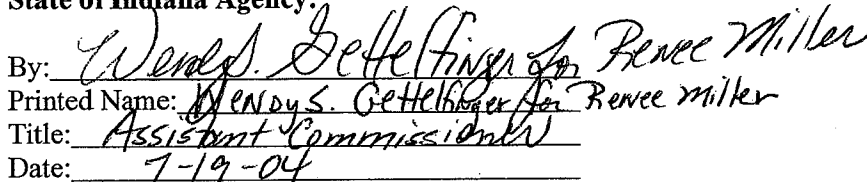 State of Indiana Agency:
By: Wendy S. Gettelfinger for Renee Miller
Printed Name: Wendy S. Gettelfinger for Renee Miller
Title: Assistant Commissioner
Date: 7-19-04